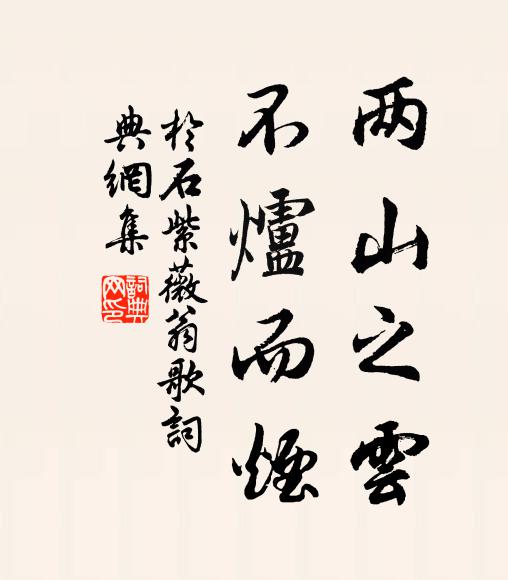 两山之雲
不爐而煙
於石紫薇翁歌詞
典網集
詞典
网印